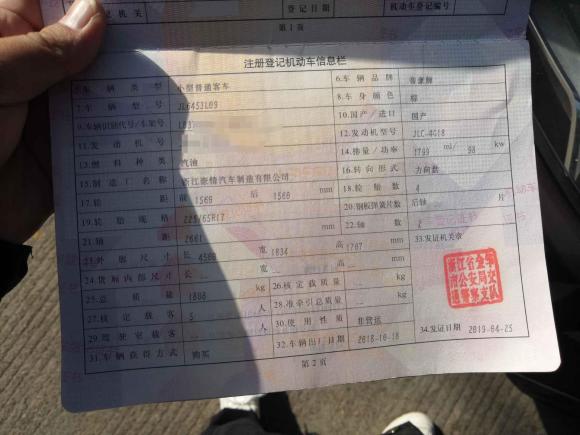 机关
登记日期
机动车登记编号
第1页
注册登记机动车信息栏
5.车辆类型 小型普通客车 6.车辆品牌
7.车辆型号 JL6453L09 8.车身颜色 棕
9.车辆识别代号/车架号 LB37 10.国产/进口 国产
11.发动机号 12.发动机型号 JLC-4G18
13.燃料种类 汽油 14.排量/功率 1799 ml/ 98 kw
15.制造厂名称 浙江豪情汽车制造有限公司 16.转向形式 方向盘
17.轮距 前 1569 后 1569 mm 18.轮胎数 4
19.轮胎规格 225/65R17 20.钢板弹簧片数 后轴 片
21.轴距 2661 mm 22.轴数 2
23.外廓尺寸 长 宽 1834 高 1707 mm 33.发证机关章
24.货厢内部尺寸 长 宽 高 mm
25.总质量 1808 kg 26.核定载质量 kg
27.核定载客 5 人 28.准牵引总质量 kg
29.驾驶室载客 人 30.使用性质 非营运
31.车辆获得方式 购买 32.车辆出厂日期 2018-10-18 34.发证日期 2019-04-25
第2页